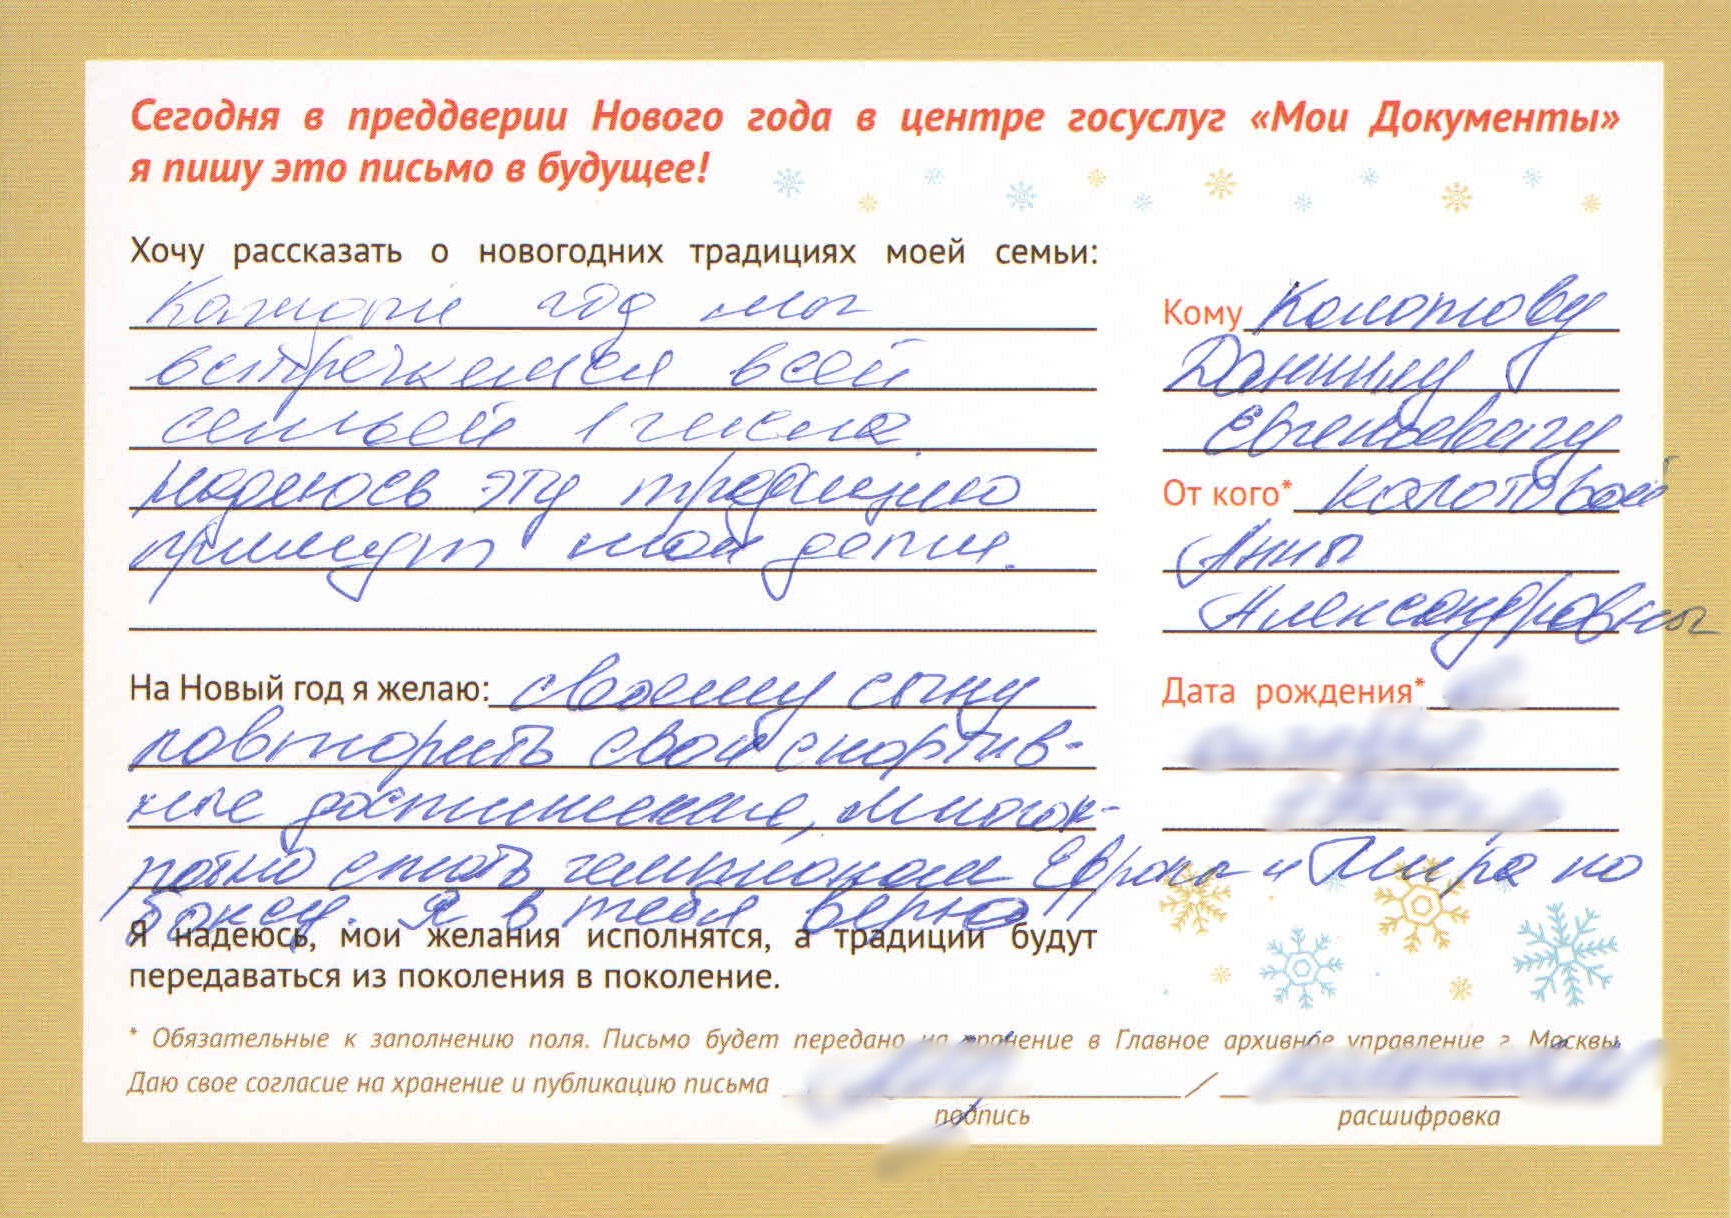 Сегодня в преддверии Нового года в центре госуслуг «Мои Документы»
я пишу это письмо в будущее!
Хочу рассказать о новогодних традициях моей семьи:
Каждый год мы
встречаемся всей
семьей 1 числа.
Надеюсь эту традицию
примут мои дети.
На Новый год я желаю: своему сыну
повторить свои спортив-
ные достижения, многок-
ратно стать чемпионом Европы и Мира по
боксу. Я в тебя верю!!
Я надеюсь, мои желания исполнятся, а традиции будут
передаваться из поколения в поколение.
Кому Колотову
Даниилу
Евгеньевичу
От кого* Колотовой
Анны
Александровны
Дата рождения*
* Обязательные к заполнению поля. Письмо будет передано на хранение в Главное архивное управление г. Москвы
Даю свое согласие на хранение и публикацию письма /
подпись расшифровка